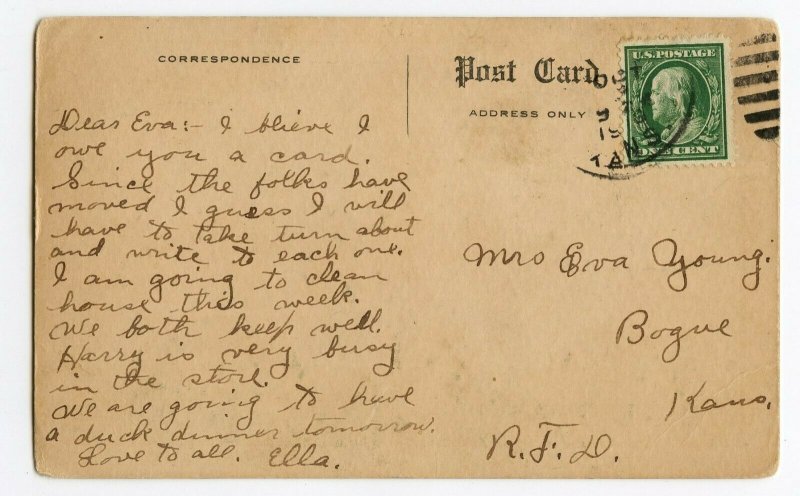 CORRESPONDENCE
Post Card
ADDRESS ONLY
U.S. POSTAGE
ONE CENT
OCT
Dear Eva:- I blieve I
owe you a card.
Since the folks have
moved I guess I will
have to take turn about
and write to each one.
I am going to clean
house this week.
We both keep well.
Harry is very busy
in the store.
We are going to have
a duck dinner tomorrow.
Love to all. Ella.
Mrs Eva Young.
Bogue
Kans.
R.F.D.